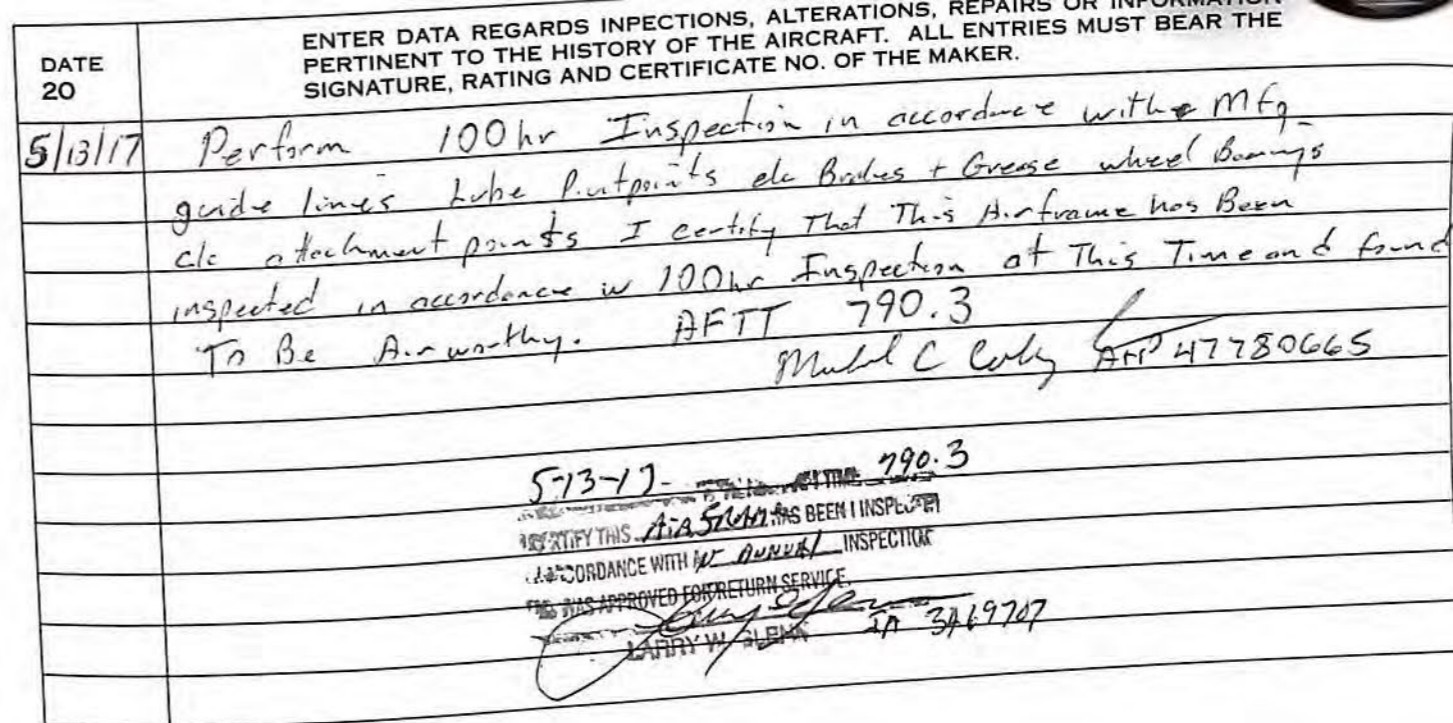 ENTER DATA REGARDS INPECTIONS, ALTERATIONS, REPAIRS OR INFORMATION
PERTINENT TO THE HISTORY OF THE AIRCRAFT. ALL ENTRIES MUST BEAR THE
SIGNATURE, RATING AND CERTIFICATE NO. OF THE MAKER.
DATE
20
5/13/17 Perform 100hr Inspection in accordance with Mfg
guide lines Lube Brakes + Grease wheel Bearings
attachment points I certify That This Airframe has Been
inspected in accordance w 100hr Inspection at This Time and found
To Be Airworthy. AFTT 790.3
C A+P 47780665
5-13-17 790.3
THIS HAS BEEN INSPECTED
ACCORDANCE WITH ANNUAL INSPECTION
WAS APPROVED FOR RETURN SERVICE.
LARRY W. GLENN IA 3169707